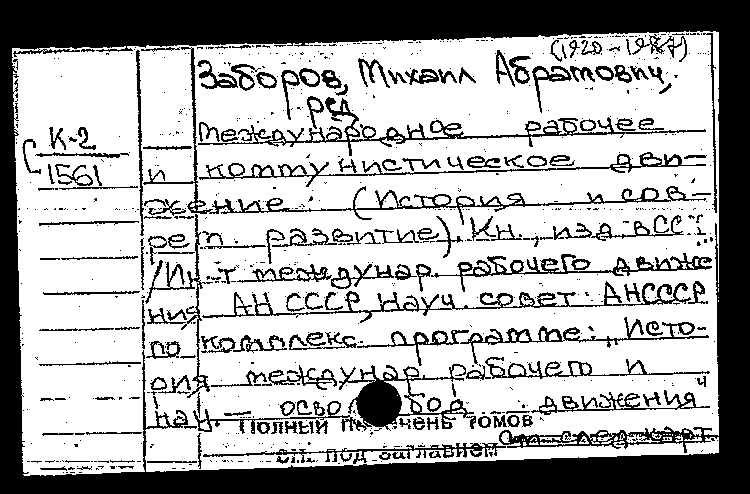 (1920-1987)
Заборов, Михаил Абрамович,
ред.
К-2
1561
Международное рабочее
и коммунистическое дви-
жение: (История и сов-
рем. развитие). Кн., изд. в СССР:
/Ин-т междунар. рабочего движе
ния АН СССР, Науч. совет АН СССР
по комплекс. программе: "Исто-
рия междунар. рабочего и
нац.-освобод. движения"
Полный перечень томов
см. под заглавием
См. след. карт.